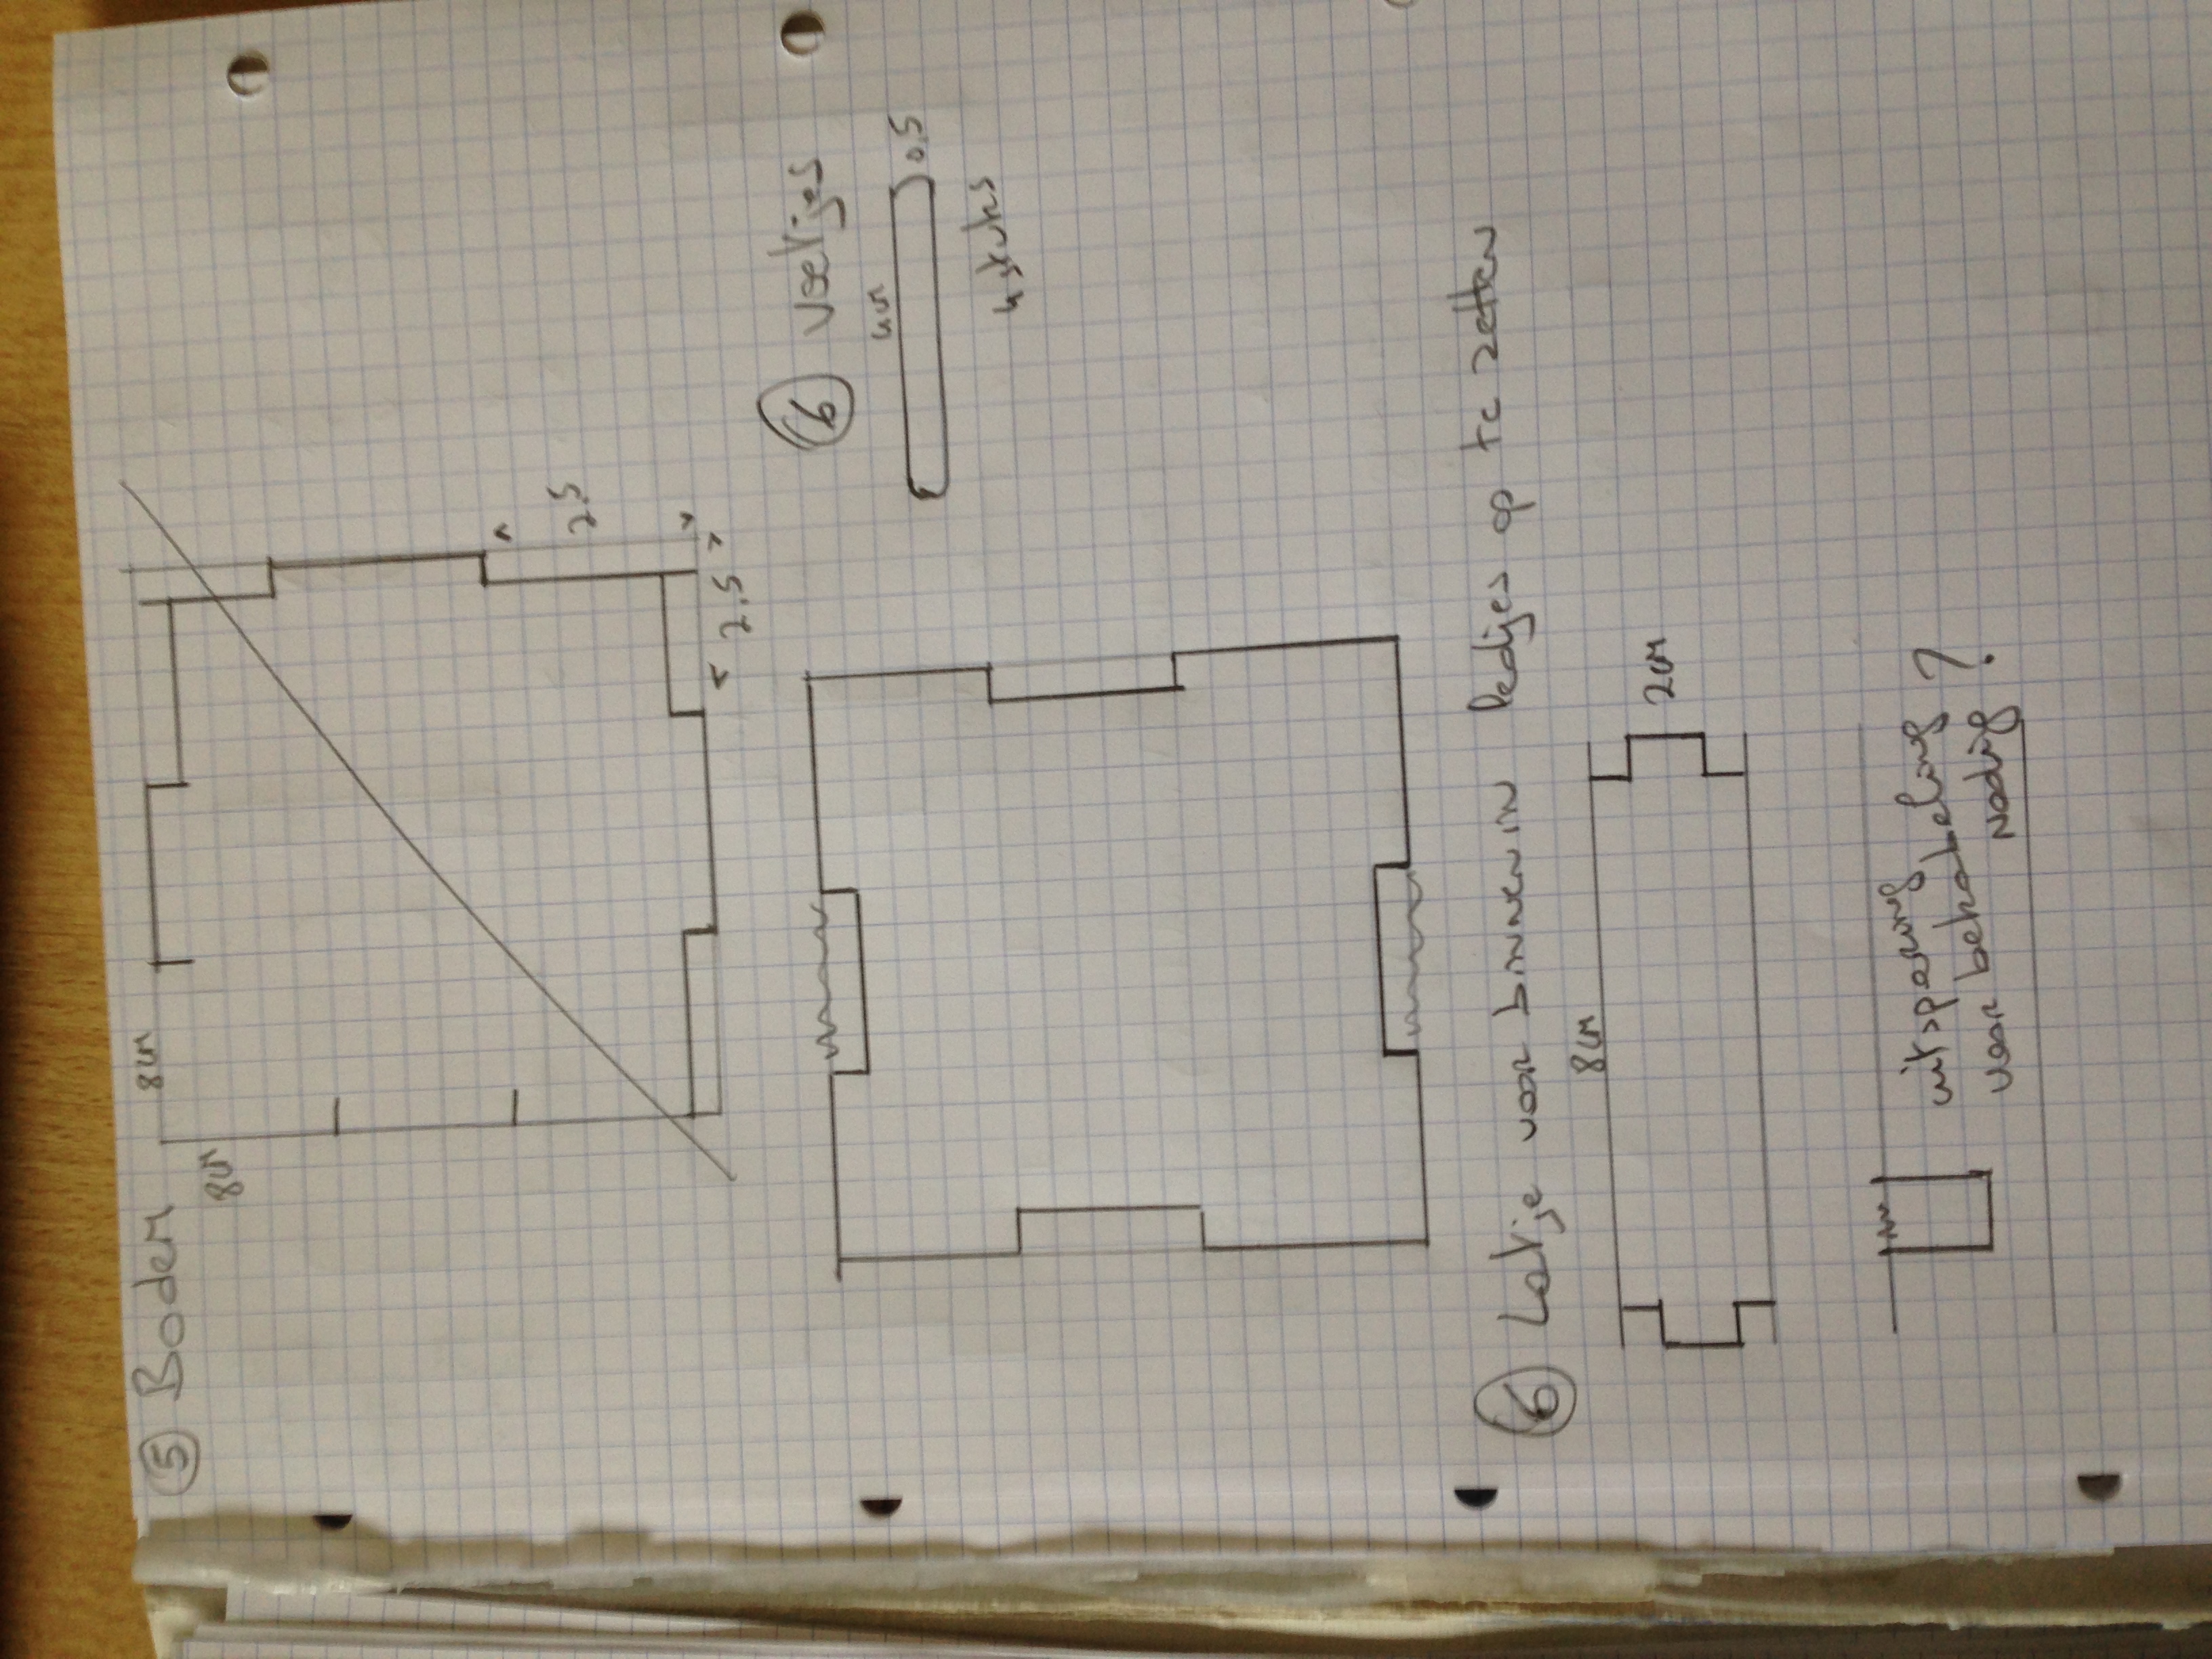 ⑤ Bodem
8cm
8cm
2.5
2.5
⑥ voetjes
4cm
0.5
4 stuks
⑥ Latje voor binnenin ledjes op te zetten
8cm
2cm
uitspering
voor bekabeling
nodig?